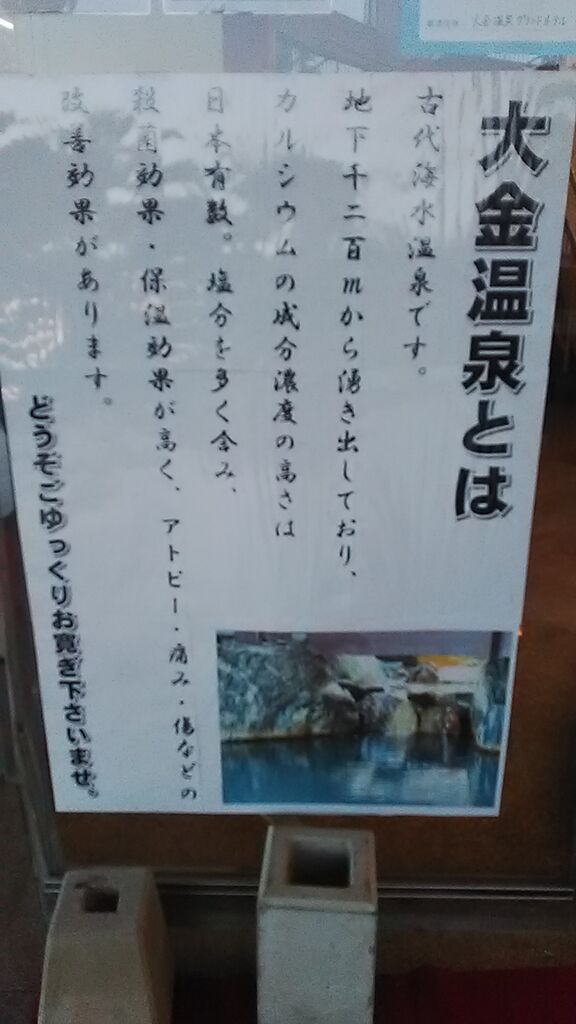 大金温泉グランドホテル
大金温泉とは
古代海水温泉です。
地下千二百mから湧き出しており、
カルシウムの成分濃度の高さは
日本有数。塩分を多く含み、
殺菌効果・保温効果が高く、アトピー・痛み・傷などの
改善効果があります。
どうぞごゆっくりお寛ぎ下さいませ。